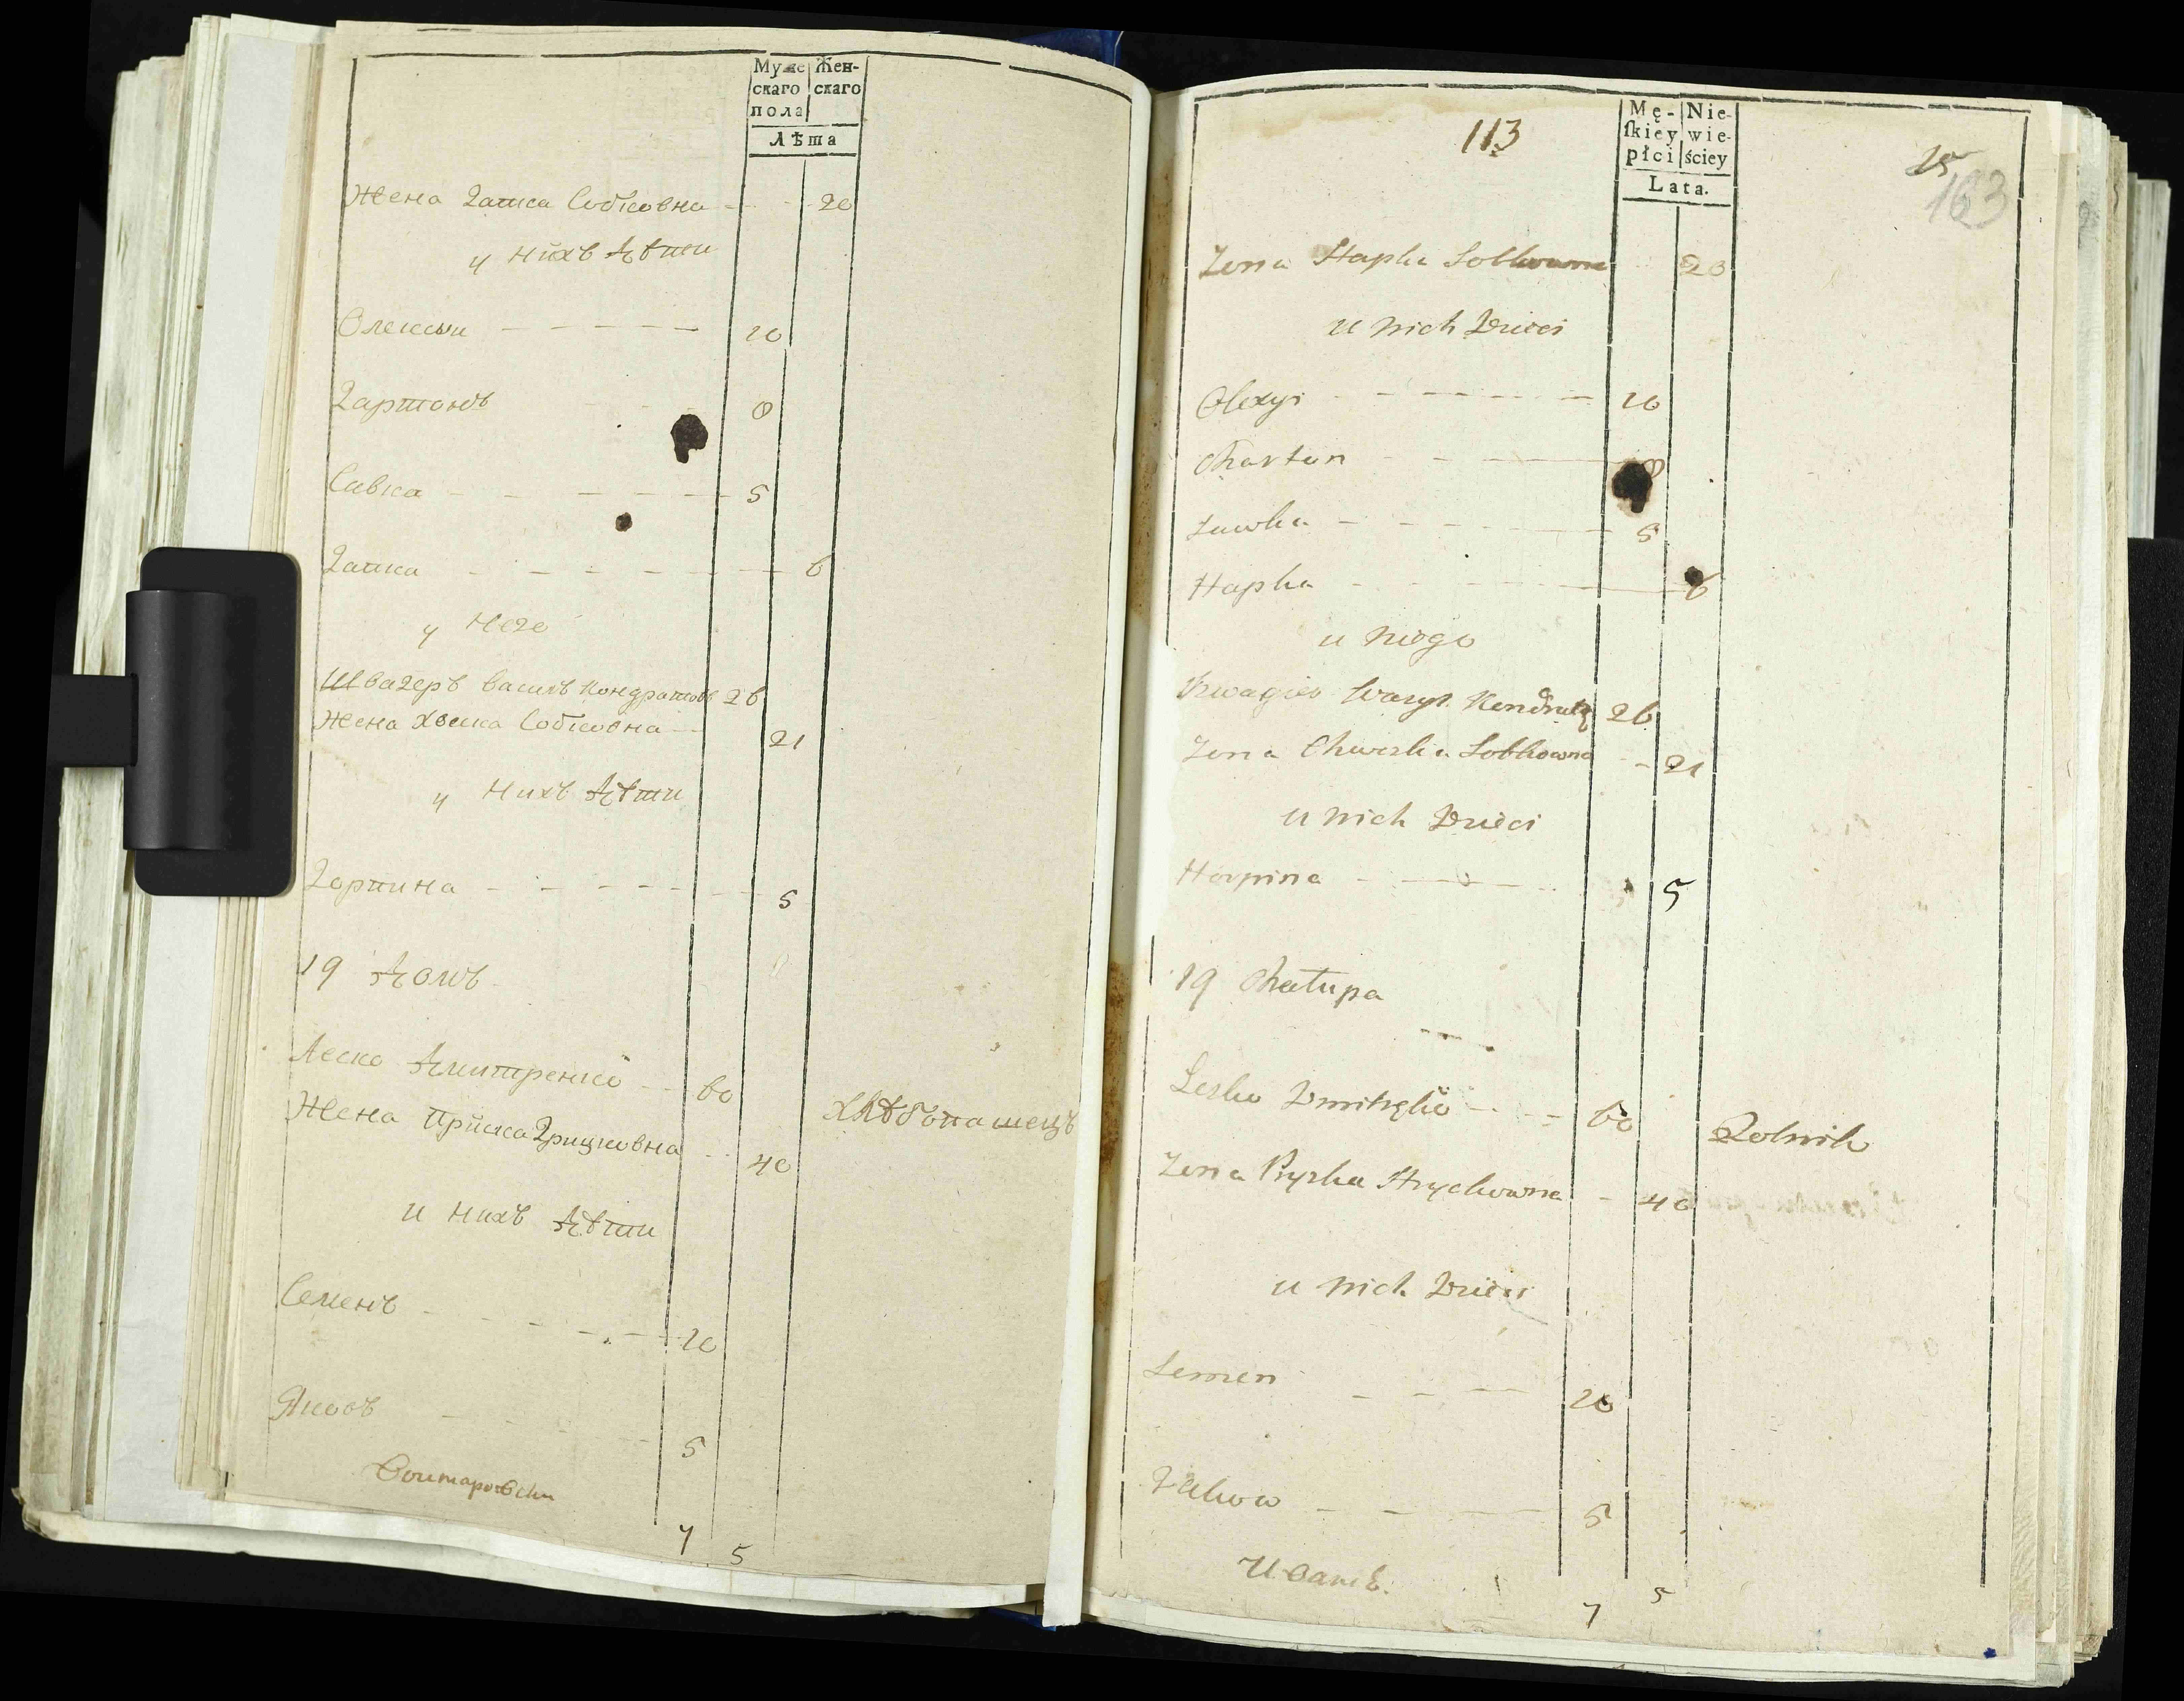 Муже Жен-
скаго скаго
пола
Лѣта
Жена Гапка Собковна 20
у нихъ дѣти
Олексѣи 10
Гартонъ 8
Савка 5
Гапка 6
у него
Швагеръ Василь Кондратовъ 26
Жена Хвеска Собковна 21
у нихъ дѣти
Горпина 5
19 Домъ
Леско Дмитренко 60
Хлѣбопашецъ
Жена Приска Грицковна 40
и нихъ дѣти
Семенъ 20
Яковъ 5
7 5
113
Mę- Nie-
ſkiey wie-
płci ściey
Lata.
15
163
Zona Hapka Sobkowna 20
u nich Dzieci
Olexyi 10
Charton 8
Sawka 5
Hapka 6
u niego
Szwagier Wasyl Kondratę 26
Zona Chweska Sobkowna 21
u nich Dzieci
Horpina 5
19 Chałupa
Lesko Dmitręko 60 Rolnik
Zona Pryska Hryckowna 40
u nich Dzieci
Semen 20
Jakow 5
7 5